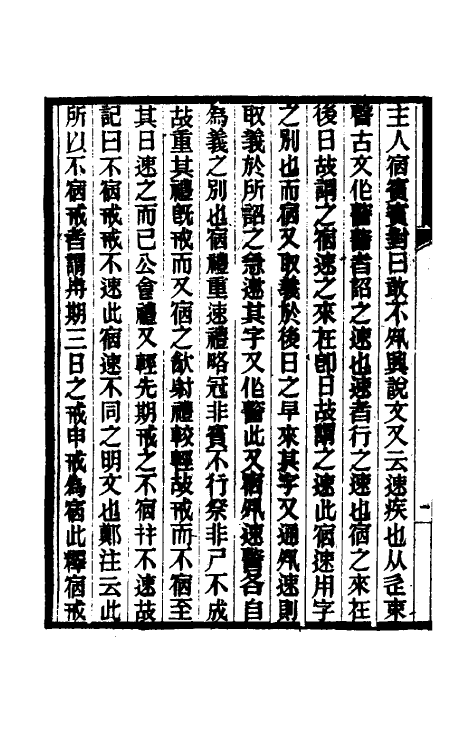 主人宿賓賓對曰敢不夙興說文又云速疾也从辵束
警古文作警警者詔之速也速者行之速也宿之來在
後日故謂之宿速之來在卽日故謂之速此宿速用字
之別也而宿又取義於後日之早來其字又通夙速則
取義於所詔之急遽其字又作警此又宿夙速警各自
為義之別也宿禮重速禮略冠非賓不行祭非尸不成
故重其禮旣戒而又宿之飲射禮較輕故戒而不宿至
其日速之而已公會禮又輕先期戒之不宿幷不速故
記曰不宿戒戒不速此宿速不同之明文也鄭注云此
所以不宿戒者謂前期三日之戒申戒為宿此釋宿戒